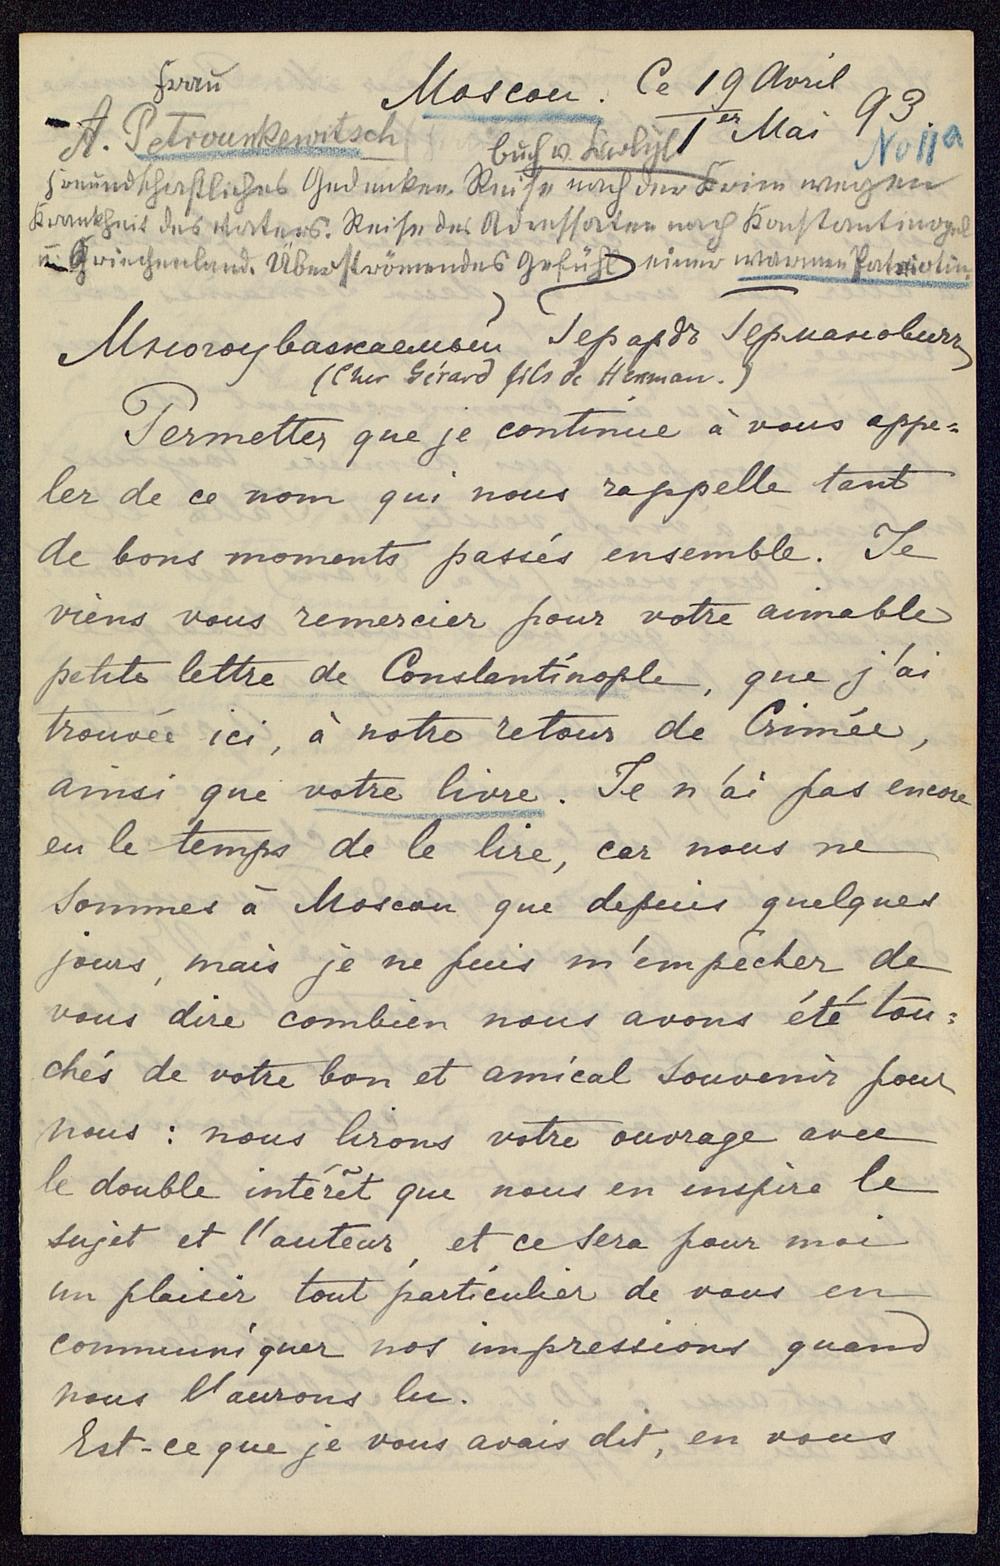 Frau
Moscou. Ce 19 Avril
1er Mai 93.
A. Petrounkewitsch
No 11a
Buch v.
Freundschaftliches Gedenken. Reise nach der Krim wegen
Krankheit des Vaters. Reise des Adressaten nach Konstantinopel
u. Griechenland. Überströmendes Gefühl einer warmen Patriotin.
Многоуважаемый Герардъ Германовичъ
(Cher Gérard fils de Herman.)
Permettez que je continue à vous appe=
ler de ce nom qui nous rappelle tant
de bons moments passés ensemble. Je
viens vous remercier pour votre aimable
petite lettre de Constantinople, que j'ai
trouvée ici, à notre retour de Crimée,
ainsi que votre livre. Je n'ai pas encore
eu le temps de le lire, car nous ne
sommes à Moscou que depuis quelques
jours, mais je ne puis m'empêcher de
vous dire combien nous avons été tou=
chés de votre bon et amical souvenir pour
nous : nous lirons votre ouvrage avec
le double intérêt que nous en inspire le
sujet et l'auteur, et ce sera pour moi
un plaisir tout particulier de vous en
communiquer nos impressions quand
nous l'aurons lu.
Est-ce que je vous avais dit, en vous